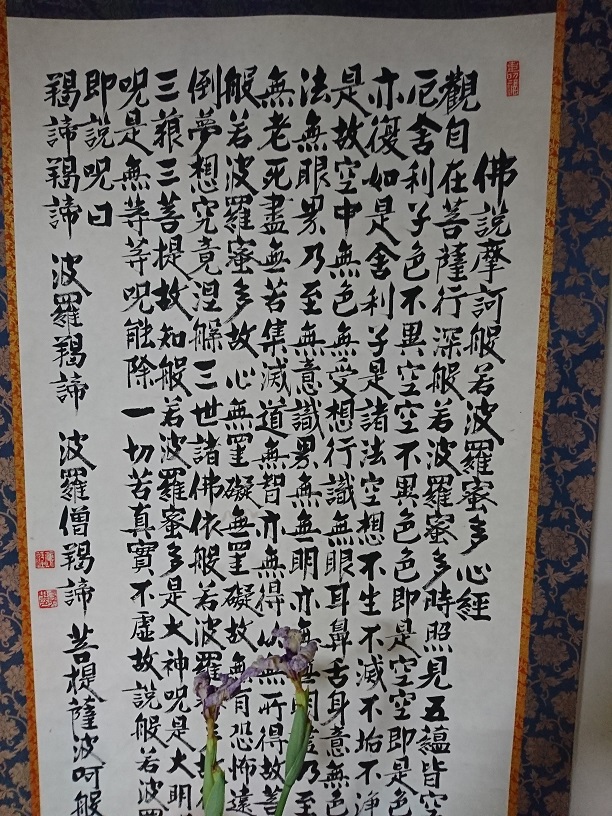 佛説摩訶般若波羅蜜多心經
觀自在菩薩行深般若波羅蜜多時照見五蘊皆空
厄舍利子色不異空空不異色色即是空空即是色
亦復如是舍利子是諸法空想不生不滅不垢不淨
是故空中無色無受想行識無眼耳鼻舌身意無色
法無眼界乃至無意識界無無明亦無無明盡乃至
無老死盡無苦集滅道無智亦無得以無所得故菩
般若波羅蜜多故心無罣礙無罣礙故無有恐怖遠
倒夢想究竟涅槃三世諸佛依般若波羅
三藐三菩提故知般若波羅蜜多是大神呪是大明
呪是無等等呪能除一切苦真實不虚故説般若波羅
即説呪曰
羯諦羯諦 波羅羯諦 波羅僧羯諦 菩提薩波呵般